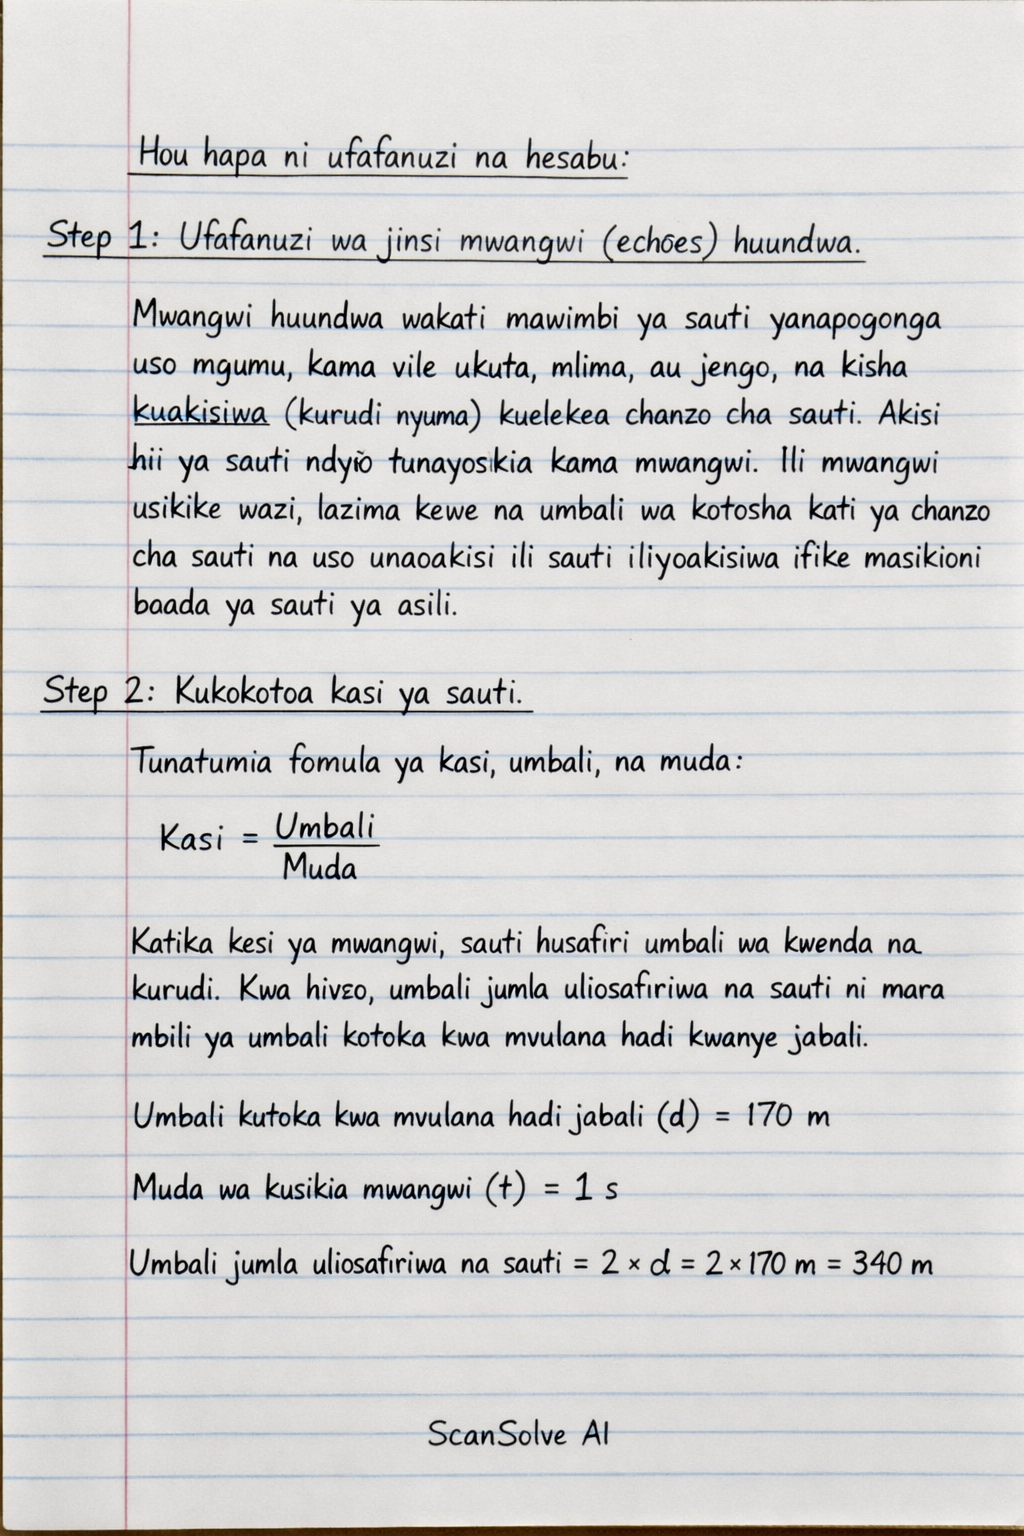 Hou hapa ni ufafanuzi na hesabu:
Step 1: Ufafanuzi wa jinsi mwangwi (echoes) huundwa.
Mwangwi huundwa wakati mawimbi ya sauti yanapogonga
uso mgumu, kama vile ukuta, mlima, au jengo, na kisha
kuakisiwa (kurudi nyuma) kuelekea chanzo cha sauti. Akisi
hii ya sauti ndyio tunayosikia kama mwangwi. Ili mwangwi
usikike wazi, lazima kewe na umbali wa kotosha kati ya chanzo
cha sauti na uso unaoakisi ili sauti iliyoakisiwa ifike masikioni
baada ya sauti ya asili.
Step 2: Kukokotoa kasi ya sauti.
Tunatumia fomula ya kasi, umbali, na muda:
Kasi = Umbali / Muda
Katika kesi ya mwangwi, sauti husafiri umbali wa kwenda na
kurudi. Kwa umbali jumla uliosafiriwa na sauti ni mara
mbili ya umbali kotoka kwa mvulana hadi kwanye jabali.
Umbali kutoka kwa mvulana hadi jabali (d) = 170 m
Muda wa kusikia mwangwi (t) = 1 s
Umbali jumla uliosafiriwa na sauti = 2 × d = 2 × 170 m = 340 m
ScanSolve AI